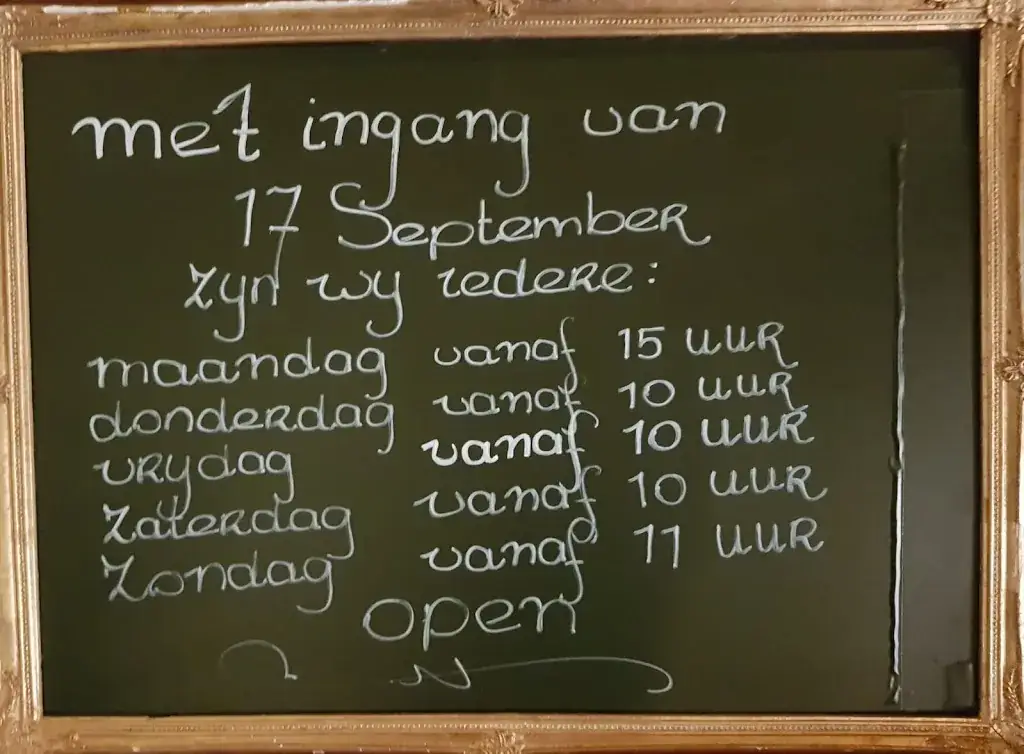 met ingang van
17 September
zyn wy iedere:
maandag vanaf 15 uur
donderdag vanaf 10 uur
vrydag vanaf 10 uur
zaterdag vanaf 10 uur
zondag vanaf 11 uur
open